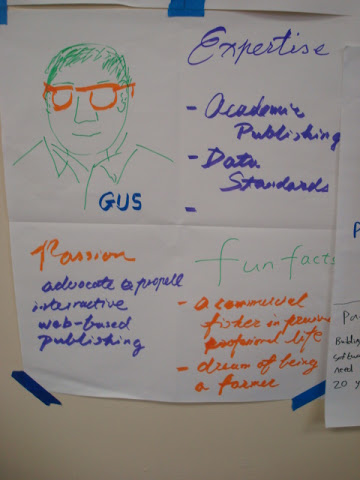 Expertise
- Academic
Publishing
- Data
Standards
-
GUS
Passion
advocate & propell
interactive
web-based
publishing
fun facts
- a commercial
fisher in previous
profesional life
- dream of being
a farmer
P
Pa
Building
software
need
20 y